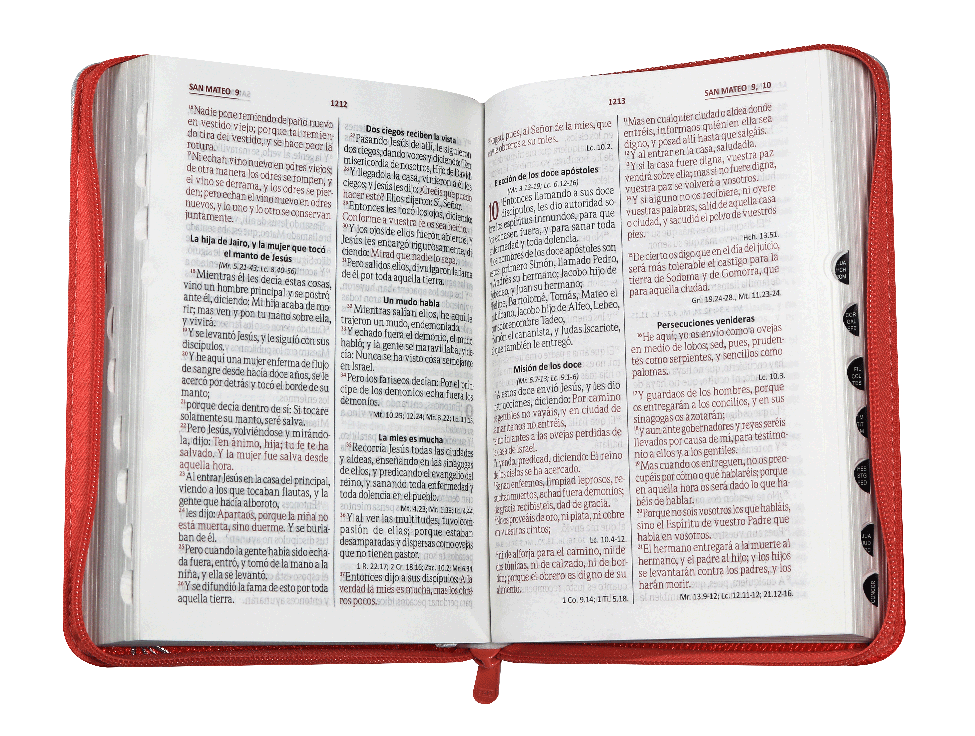 SAN MATEO 9
1212
16 Nadie pone remiendo de paño nuevo
en vestido viejo; porque tal remien-
do tira del vestido, y se hace peor la
rotura.
17 Ni echan vino nuevo en odres viejos;
de otra manera los odres se rompen, y
el vino se derrama, y los odres se pier-
den; pero echan el vino nuevo en odres
nuevos, y lo uno y lo otro se conservan
juntamente.
La hija de Jairo, y la mujer que tocó
el manto de Jesús
(Mr. 5.21-43; Lc. 8.40-56)
18 Mientras él les decía estas cosas,
vino un hombre principal y se postró
ante él, diciendo: Mi hija acaba de mo-
rir; mas ven y pon tu mano sobre ella,
y vivirá.
19 Y se levantó Jesús, y le siguió con sus
discípulos.
20 Y he aquí una mujer enferma de flujo
de sangre desde hacía doce años, se le
acercó por detrás y tocó el borde de su
manto;
21 porque decía dentro de sí: Si tocare
solamente su manto, seré salva.
22 Pero Jesús, volviéndose y mirándo-
la, dijo: Ten ánimo, hija; tu fe te ha
salvado. Y la mujer fue salva desde
aquella hora.
23 Al entrar Jesús en la casa del principal,
viendo a los que tocaban flautas, y la
gente que hacía alboroto,
24 les dijo: Apartaos, porque la niña no
está muerta, sino duerme. Y se burla-
ban de él.
25 Pero cuando la gente había sido echa-
da fuera, entró, y tomó de la mano a la
niña, y ella se levantó.
26 Y se difundió la fama de esto por toda
aquella tierra.
Dos ciegos reciben la vista
27 Pasando Jesús de allí, le siguieron
dos ciegos, dando voces y diciendo: ¡Ten
misericordia de nosotros, Hijo de David!
28 Y llegado a la casa, vinieron a él los
ciegos; y Jesús les dijo: ¿Creéis que puedo
hacer esto? Ellos dijeron: Sí, Señor.
29 Entonces les tocó los ojos, diciendo:
Conforme a vuestra fe os sea hecho.
30 Y los ojos de ellos fueron abiertos. Y
Jesús les encargó rigurosamente, di-
ciendo: Mirad que nadie lo sepa.
31 Pero salidos ellos, divulgaron la fama
de él por toda aquella tierra.
Un mudo habla
32 Mientras salían ellos, he aquí, le
trajeron un mudo, endemoniado.
33 Y echado fuera el demonio, el mudo
habló; y la gente se maravillaba, y de-
cía: Nunca se ha visto cosa semejante
en Israel.
34 Pero los fariseos decían: Por el prín-
cipe de los demonios echa fuera los
demonios.
Mt. 10.25; 12.24; Mr. 3.22; Lc. 11.15.
La mies es mucha
35 Recorría Jesús todas las ciudades
y aldeas, enseñando en las sinagogas
de ellos, y predicando el evangelio del
reino, y sanando toda enfermedad y
toda dolencia en el pueblo.
Mt. 4.23; Mr. 1.39; Lc. 4.44.
36 Y al ver las multitudes, tuvo com-
pasión de ellas; porque estaban
desamparadas y dispersas como ovejas
que no tienen pastor.
1 R. 22.17; 2 Cr. 18.16; Zac. 10.2; Mr. 6.34.
37 Entonces dijo a sus discípulos: A la
verdad la mies es mucha, mas los obre-
ros pocos.
1213
SAN MATEO 9, 10
pues, al Señor de la mies, que
obreros a su mies.
Lc. 10.2.
Elección de los doce apóstoles
(Mr. 3.13-19; Lc. 6.12-16)
10 Entonces llamando a sus doce
discípulos, les dio autoridad so-
los espíritus inmundos, para que
echasen fuera, y para sanar toda
enfermedad y toda dolencia.
nombres de los doce apóstoles son
primero Simón, llamado Pedro,
Andrés su hermano; Jacobo hijo de
Zebedeo, y Juan su hermano;
Felipe, Bartolomé, Tomás, Mateo el
publicano, Jacobo hijo de Alfeo, Lebeo,
por sobrenombre Tadeo,
Simón el cananista, y Judas Iscariote,
que también le entregó.
Misión de los doce
(Mr. 6.7-13; Lc. 9.1-6)
A estos doce envió Jesús, y les dio
instrucciones, diciendo: Por camino
gentiles no vayáis, y en ciudad de
samaritanos no entréis,
id antes a las ovejas perdidas de
la casa de Israel.
Y yendo, predicad, diciendo: El reino
de los cielos se ha acercado.
Sanad enfermos, limpiad leprosos, re-
sucitad muertos, echad fuera demonios;
de gracia recibisteis, dad de gracia.
No os proveáis de oro, ni plata, ni cobre
en vuestros cintos;
Lc. 10.4-12.
ni de alforja para el camino, ni de
dos túnicas, ni de calzado, ni de bor-
dón; porque el obrero es digno de su
alimento.
1 Co. 9.14; 1 Ti. 5.18.
11 Mas en cualquier ciudad o aldea donde
entréis, informaos quién en ella sea
digno, y posad allí hasta que salgáis.
12 Y al entrar en la casa, saludadla.
13 Y si la casa fuere digna, vuestra paz
vendrá sobre ella; mas si no fuere digna,
vuestra paz se volverá a vosotros.
14 Y si alguno no os recibiere, ni oyere
vuestras palabras, salid de aquella casa
o ciudad, y sacudid el polvo de vuestros
pies.
Hch. 13.51.
15 De cierto os digo que en el día del juicio,
será más tolerable el castigo para la
tierra de Sodoma y de Gomorra, que
para aquella ciudad.
Gn. 19.24-28.; Mt. 11.23-24.
Persecuciones venideras
16 He aquí, yo os envío como a ovejas
en medio de lobos; sed, pues, pruden-
tes como serpientes, y sencillos como
palomas.
Lc. 10.3.
17 Y guardaos de los hombres, porque
os entregarán a los concilios, y en sus
sinagogas os azotarán;
18 y aun ante gobernadores y reyes seréis
llevados por causa de mí, para testimo-
nio a ellos y a los gentiles.
19 Mas cuando os entreguen, no os preo-
cupéis por cómo o qué hablaréis; porque
en aquella hora os será dado lo que ha-
béis de hablar.
20 Porque no sois vosotros los que habláis,
sino el Espíritu de vuestro Padre que
habla en vosotros.
21 El hermano entregará a la muerte al
hermano, y el padre al hijo; y los hijos
se levantarán contra los padres, y los
harán morir.
Mr. 13.9-12; Lc. 12.11-12; 21.12-16.
CONCOR